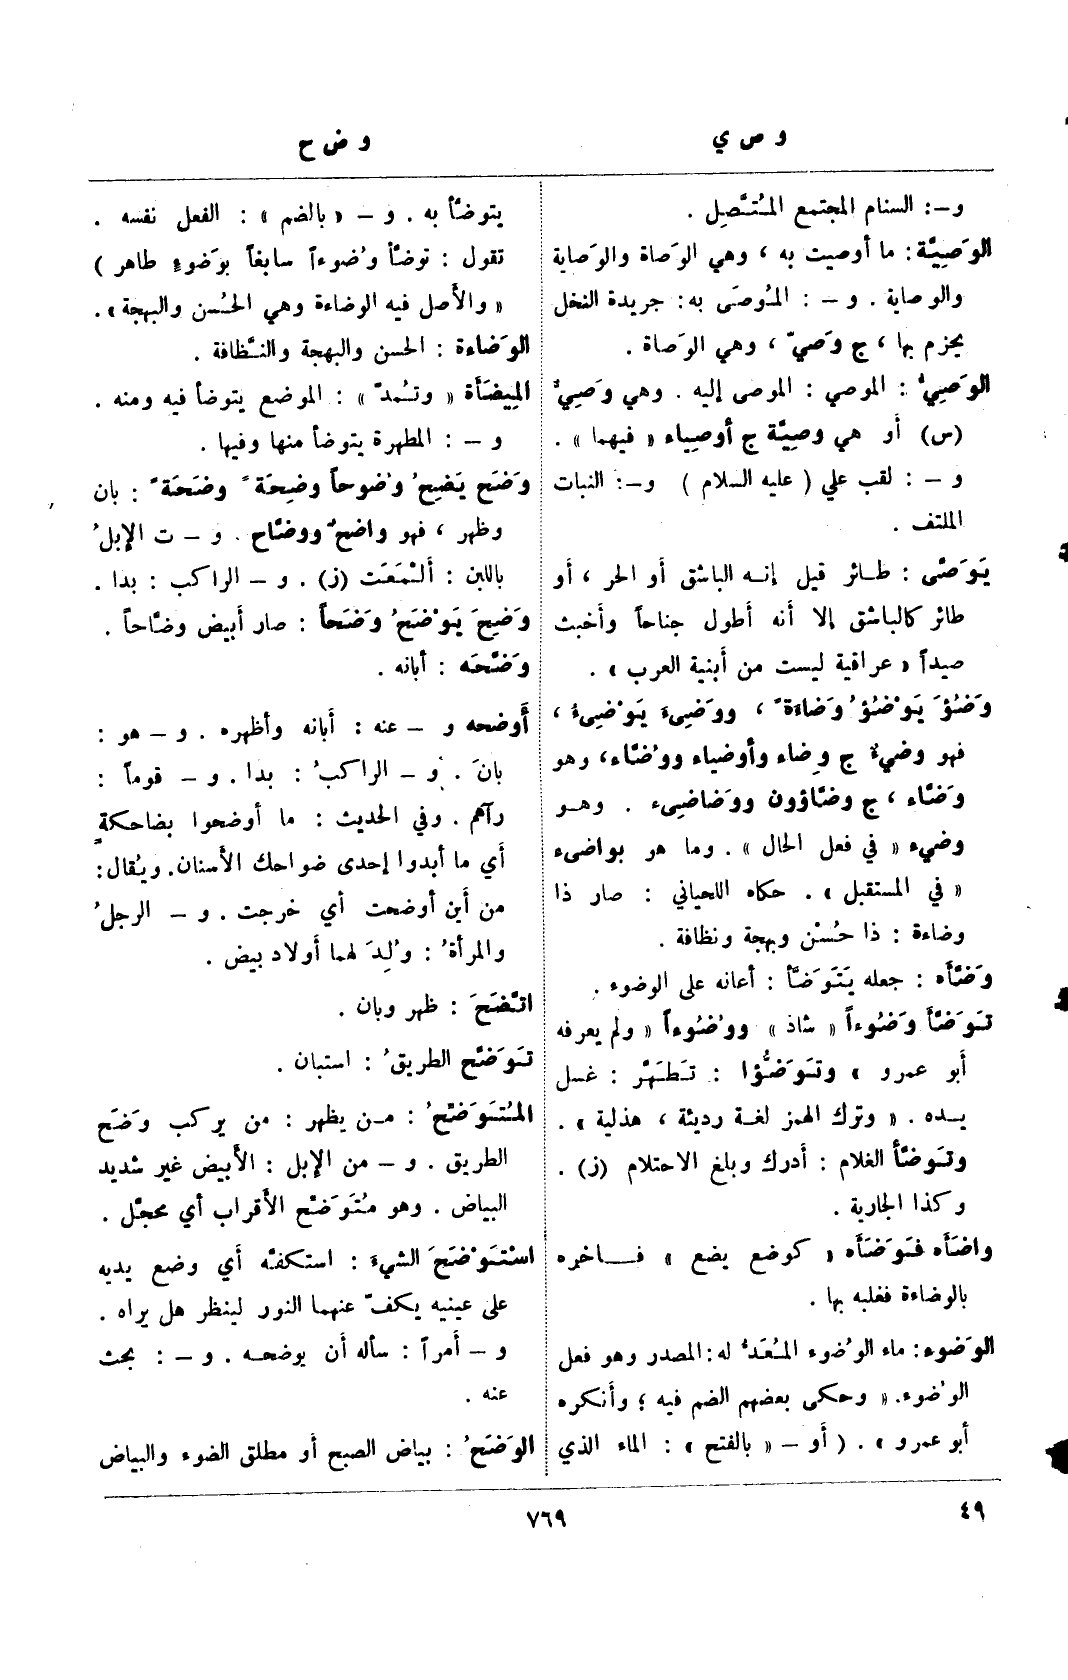 و ص ي
و ض ح
و–: السنام المجتمع المُتَّصِل .
الوَصِيَّة: ما أوصيت به ، وهي الوَصاة والوَصاية
والوصاية . و – : المُوصَى به: جريدة النخل
يحزم بها ، ج وَصيّ ، وهي الوَصاة .
الوَصِيُّ : الموصي : الموصى إليه . وهي وَصِيٌّ
(س) أو هي وصِيَّة ج أوصِياء « فيهما » .
و – : لقب علي ( عليه السلام ) و–: النبات
الملتف .
يَوَصَّى : طائر قيل إنه الباشق أو الحر ، أو
طائر كالباشق إلا أنه أطول جناحاً وأخبث
صيداً « عراقية ليست من أبنية العرب » .
وَضُؤَ يَوْضُؤُ وَضاءَةً ، ووَضِىءَ يَوْضِىءُ ،
فهو وضيءٌ ج وِضاء وأوضياء ووُضَّاء، وهو
وَضَّاء ، ج وضَّاؤون ووَضاضِىء . وهو
وضيء « في فعل الحال » . وما هو بواضىء
« في المستقبل » . حكاه اللحياني : صار ذا
وضاءة : ذا حُسْن وبهجة ونظافة .
وَضَّأَه : جعله يَتَوَضَّأ : أعانه على الوضوء .
تَوَضَّأ وَضُوءاً « شاذ » ووُضُوءاً « ولم يعرفه
أبو عمرو » وتَوَضُّؤا : تَطَهَّر : غسل
يده . « وترك الهمز لغة رديئة ، هذلية » .
وتَوضَّأ الغلام : أدرك وبلغ الاحتلام (ز) .
وكذا الجارية .
واضَأَه فَوَضَأَه « كوضع يضع » فاخره
بالوضاءة فغلبه بها .
الوَضوء: ماء الوُضوء المُعَدُّ له: المصدر وهو فعل
الوُضوء. « وحكى بعضهم الضم فيه ؛ وأنكره
أبو عمرو » . ( أو – « بالفتح » : الماء الذي
يتوضَّأ به . و – « بالضم » : الفعل نفسه .
تقول : توضَّأ وُضوءاً سابغاً بوَضوءٍ طاهر )
« والأصل فيه الوضاءة وهي الحُسن والبهجة » .
الوَضاءة : الحسن والبهجة والنَّظافة .
المِيضَأَة « وتُمدّ » : الموضع يتوضأ فيه ومنه .
و – : المطهرة يتوضأ منها وفيها .
وَضَح يَضِحُ وُضوحاً وضِحَةً وضَحَةً : بان
وظهر ، فهو واضحٌ ووضَّاح . و – ت الإبلُ
باللبن : ألْمَعَت (ز) . و – الراكب : بدا .
وَضِحَ يَوْضَحُ وَضَحاً : صار أبيض وضَّاحاً .
وَضَّحَه : أبانه .
أوضحه و – عنه : أبانه وأظهره . و – هو :
بانَ . و – الراكبُ : بدا . و – قوماً :
رآهم . وفي الحديث : ما أوضحوا بضاحكةٍ
أي ما أبدوا إحدى ضواحك الأسنان. ويُقال:
من أين أوضحت أي خرجت . و – الرجلُ
والمرأةُ : وُلِدَ لهما أولاد بيض .
اتَّضَحَ : ظهر وبان .
تَوَضَّح الطريقُ : استبان .
المُتَوَضِّحُ : من يظهر : من يركب وَضَح
الطريق . و – من الإبل : الأبيض غير شديد
البياض . وهو مُتَوَضِّح الأقراب أي محجَّل .
اسْتَوْضَحَ الشيءَ : استكفّه أي وضع يديه
على عينيه يكفّ عنهما النور لينظر هل يراه .
و – أمراً : سأله أن يوضحه . و – : بحث
عنه .
الوَضَحُ : بياض الصبح أو مطلق الضوء والبياض
٧٦٩
٤٩